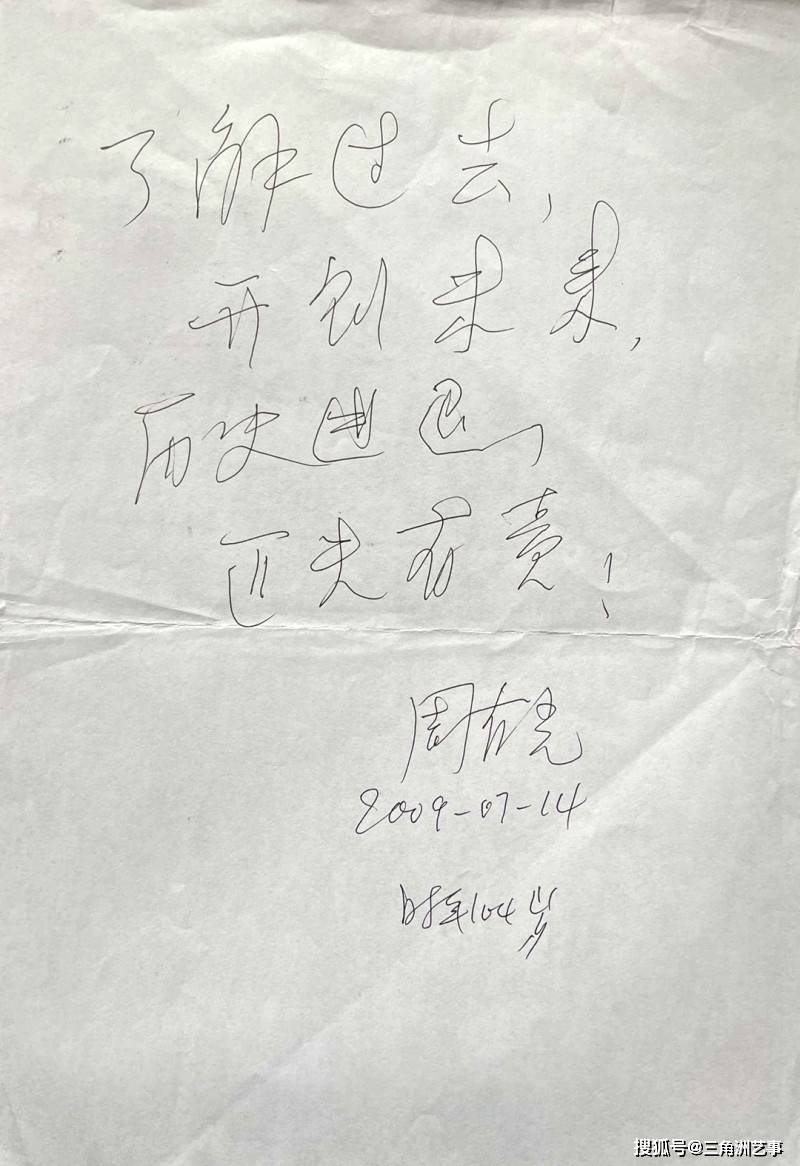 了解过去,
开创未来,
历史进退,
匹夫有责!
周有光
2009-07-14
时年104岁
搜狐号@三角洲艺事